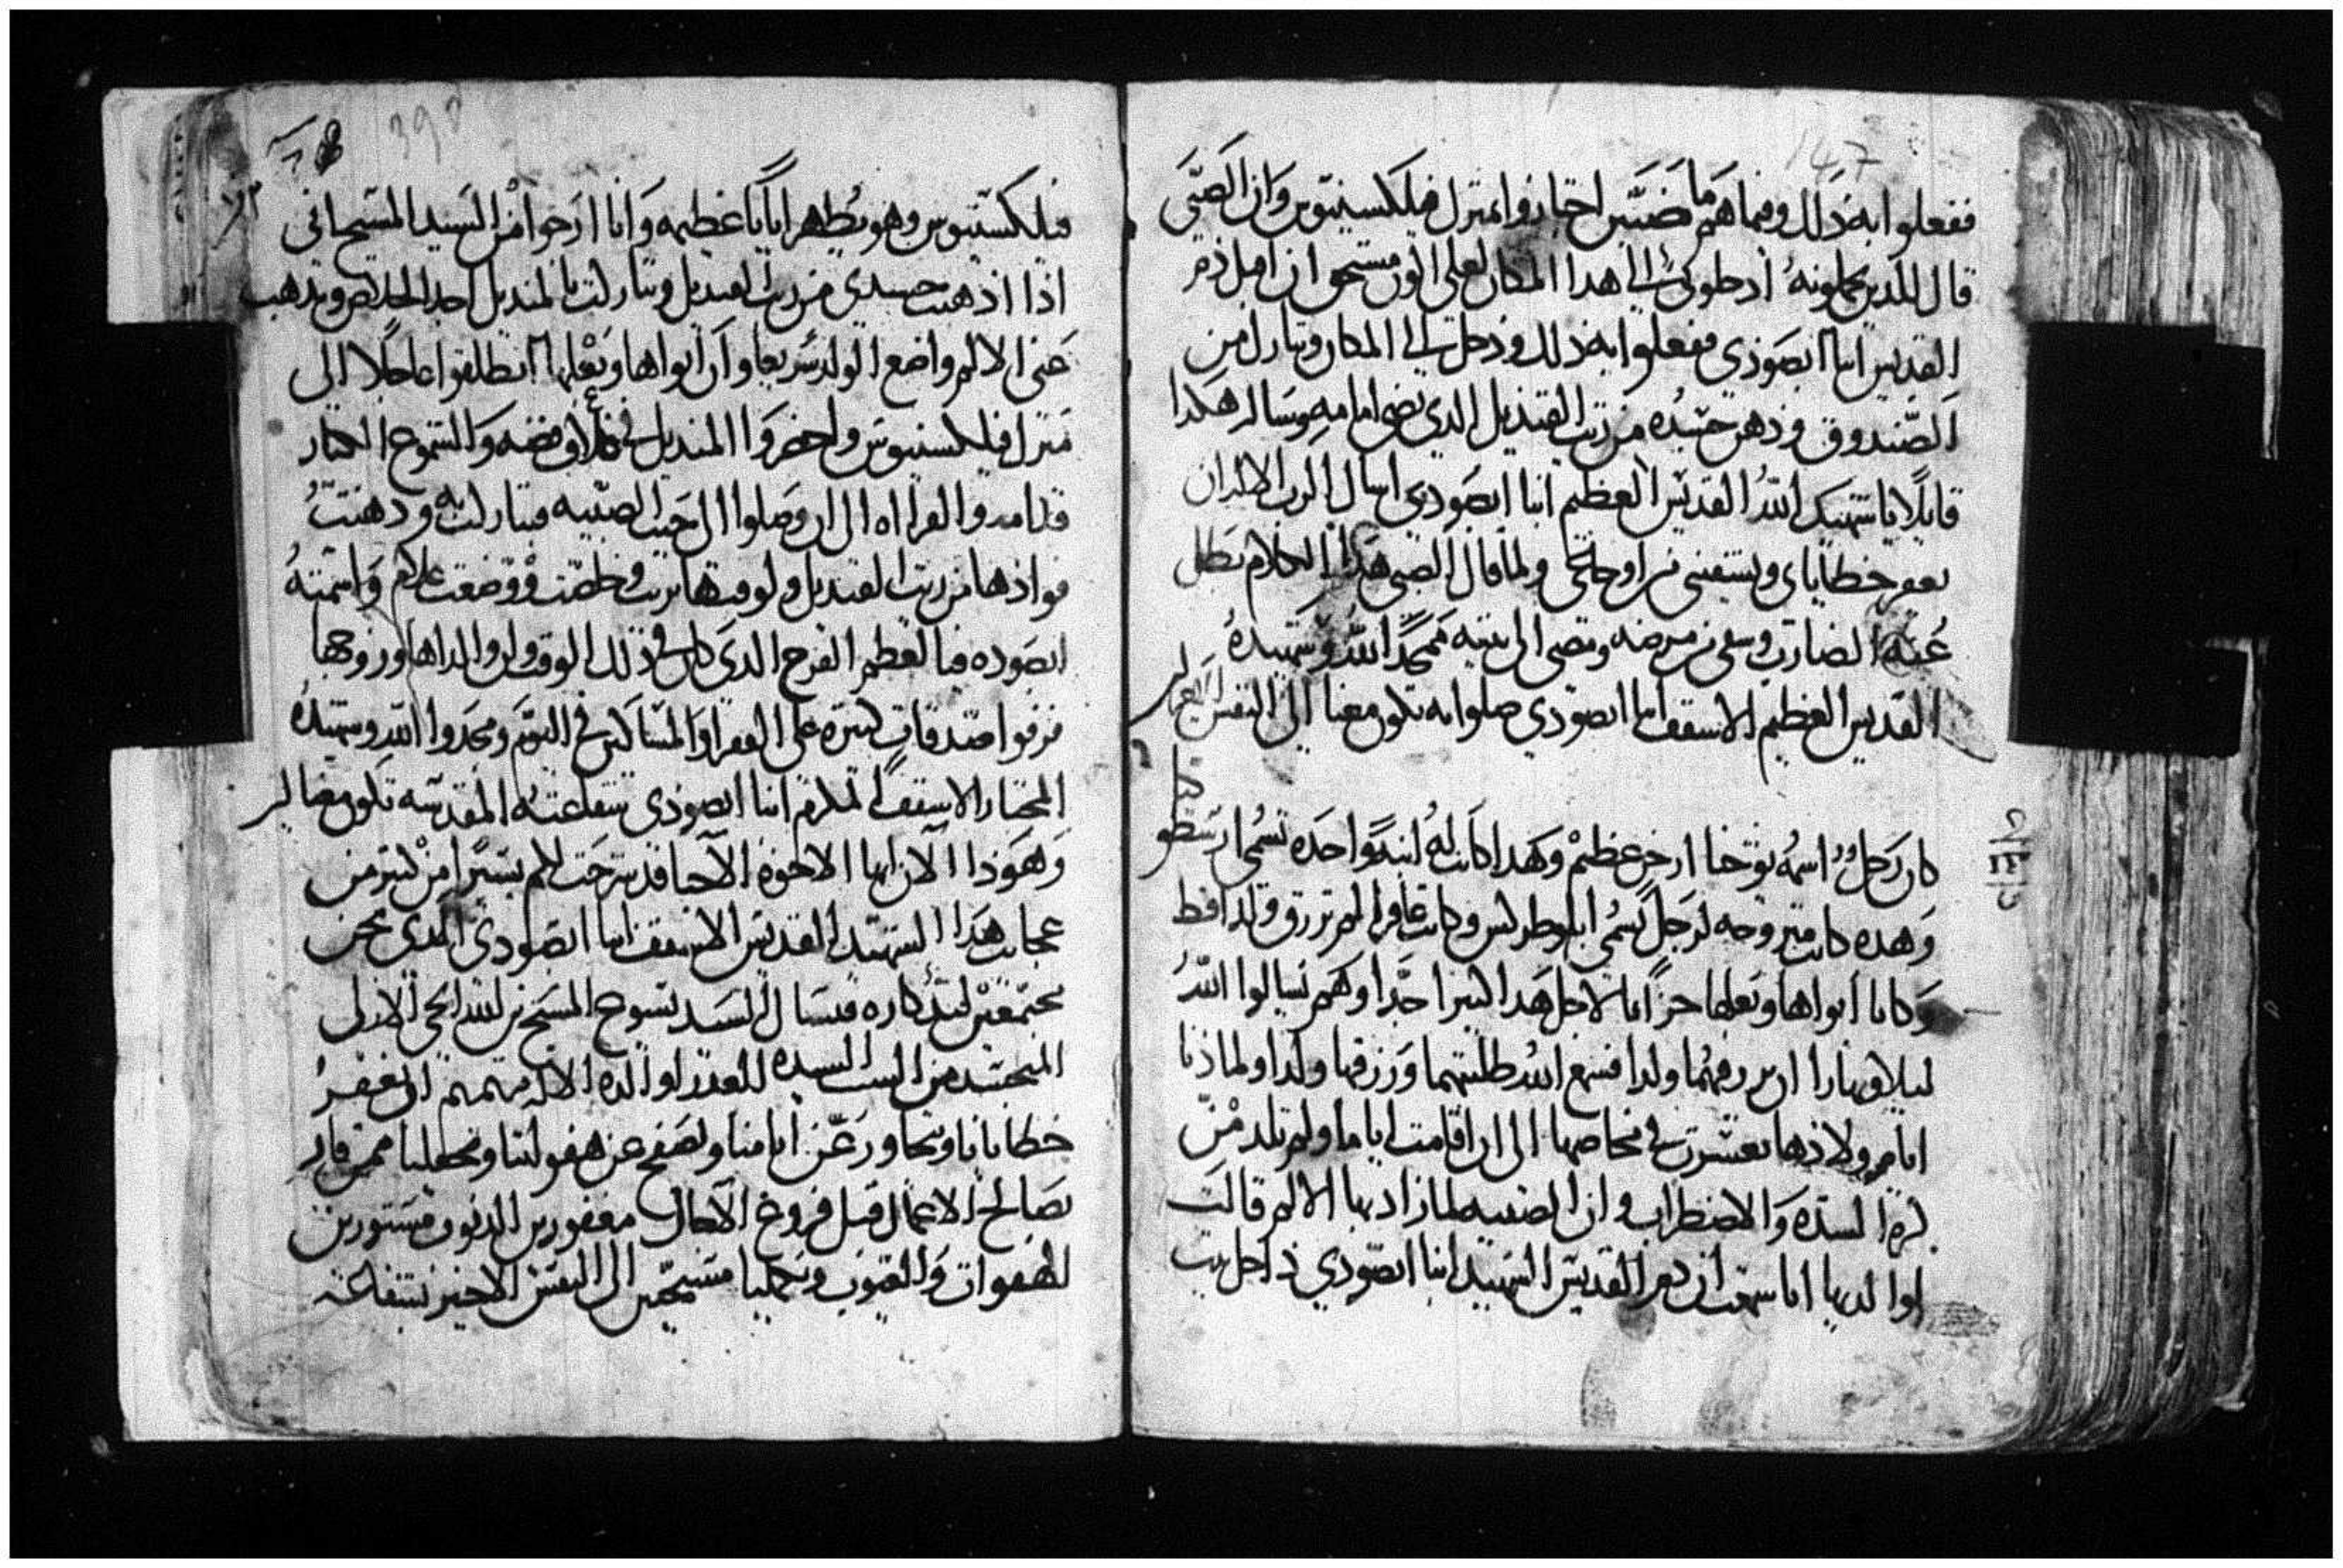 147
ففعلوا به ذلك وفيما هم ماضيين اجتازوا بمنزل فيلكسينيوس وان الصبى
قال للدين يحملونه ادخلونى الى هدا المكان لعلى اكون مستحق ان اقبل دم
القديس انبا ابصودى ففعلوا به ذلك ودخل الى المكان وتبارك من
الصندوق ودهن جسده من زيت القنديل الدي يضى امامه وسال هكدا
قايلاً يا شهيد الله القديس العظيم انبا ابصودى اسال الرب الاله ان
يغفر خطاياى ويشفينى من اوجاعى ولما قال الصبى هدا الكلام بطل
عنه الضارب وشفى من مرضه ومضى الى بيته ممجداً الله وشهيده
القديس العظيم الاسقف انبا ابصودي صلواته تكون معنا الى النفس الاخير
كان رجلٌ اسمه يوحنا ارخن عظيم وكهدا كانت له ابنةً واحده تسمى
وهده كانت متزوجه لرجل يسمى وكانت عاقرا لم ترزق ولد قط
وكانا ابواها وبعلها حزانا لاجل هدا كتيرا جدا وهم يسالوا الله
ليلا ونهارا ان يرزقهما ولدا فسمع الله طلبتهما ورزقها ولدا ولما دنا
ايام ولادها تعسرت فى مخاضها الى ان اقامت اياما ولم تلد من
كترة الشده والاضطراب وان الصبيه لما زاد بها الالم قالت
لوالديها انا سمعت ان دم القديس الشهيد انبا ابصودي داخل بيت
398
فيلكسينيوس وهو يظهر اياتا عظيمه وانا ارجوا من السيد المسيح اننى
اذا ادهنت جسدي من زيت القنديل وتباركت بالمنديل اجد الخلاص ويدهب
عنى الالم واضع الولد سريعا وان ابواها وبعلها انطلقوا عاجلاً الى
منزل فيلكسينيوس واحضروا المنديل فى غلاف فضه والشموع الكبار
قدامه والقراه الى ان وصلوا الى حيث الصبيه فتباركت به ودهنت
فوادها من زيت القنديل ولوقتها بريت وخلصت ووضعت غلام واسمته
ابصوده فيا لعظم الفرح الدى كان فى دلك الوقت لوالداها وزوجها
فرقوا صدقات كتيره على الفقرا والمساكين فى اليوم ومجدوا الله وشهيده
المختار الاسقف المكرم انبا ابصودى شفاعته المقدسه تكون معنا
وهوذا الان ايها الاخوه الاحبا قد شرحت لكم يسيرا من كتير من
عجايب هدا الشهيد القديس الاسقف انبا ابصودى الدى نحن
مجتمعين لتدكاره فنسال السيد يسوع المسيح بن الله الحى الازلى
المتجسد من الست السيده العدرا والدة الاله مرتمريم ان يغفر
خطايانا ويتجاوز عن اتامنا ويصفح عن هفواتنا ويجعلنا ممن فاز
بصالح الاعمال قبل فروغ الاجال مغفورين الدنوب مستورين
الهفوات والعيوب ويجعلنا مسيحيين الى النفس الاخير بشفاعة